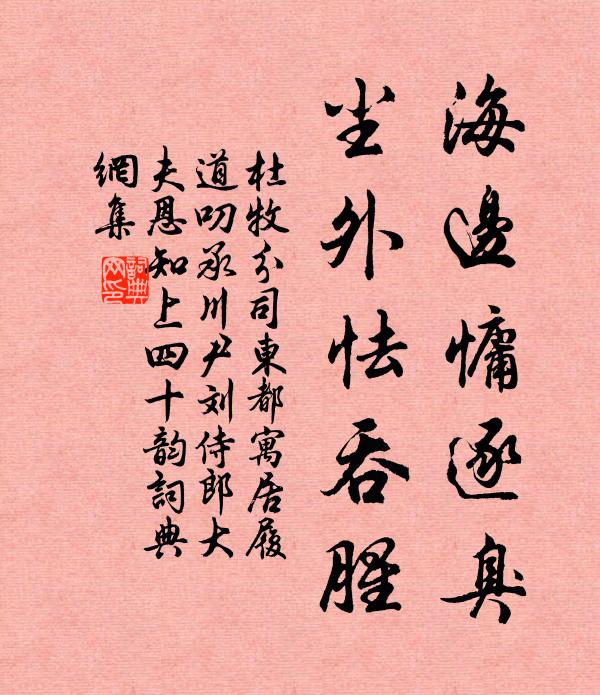 海邊慵逐臭
塵外怯吞腥
杜牧分司東都寓居履
道叨承川尹刘侍郎大
夫恩知上四十韵詞典
網集
詞典網印